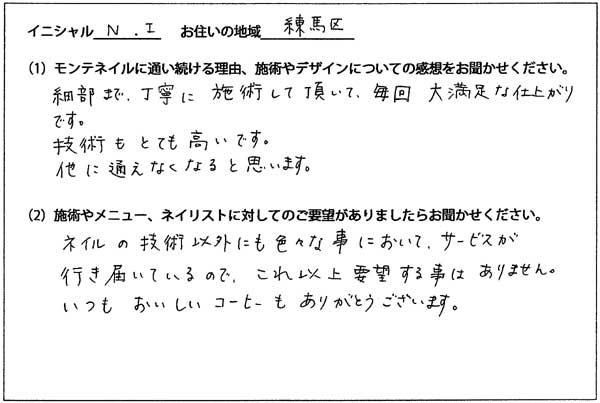 イニシャル N.I お住いの地域 練馬区
(1) モンテネイルに通い続ける理由、施術やデザインについての感想をお聞かせください。
細部まで、丁寧に 施術して頂いて、毎回 大満足な仕上がり
です。
技術も とても 高いです。
他に 通えなくなると 思います。
(2) 施術やメニュー、ネイリストに対してのご要望がありましたらお聞かせください。
ネイルの 技術 以外にも 色々な 事 において、サービスが
行き届いているので、これ以上 要望する事は ありません。
いつも おいしい コーヒーも ありがとうございます。